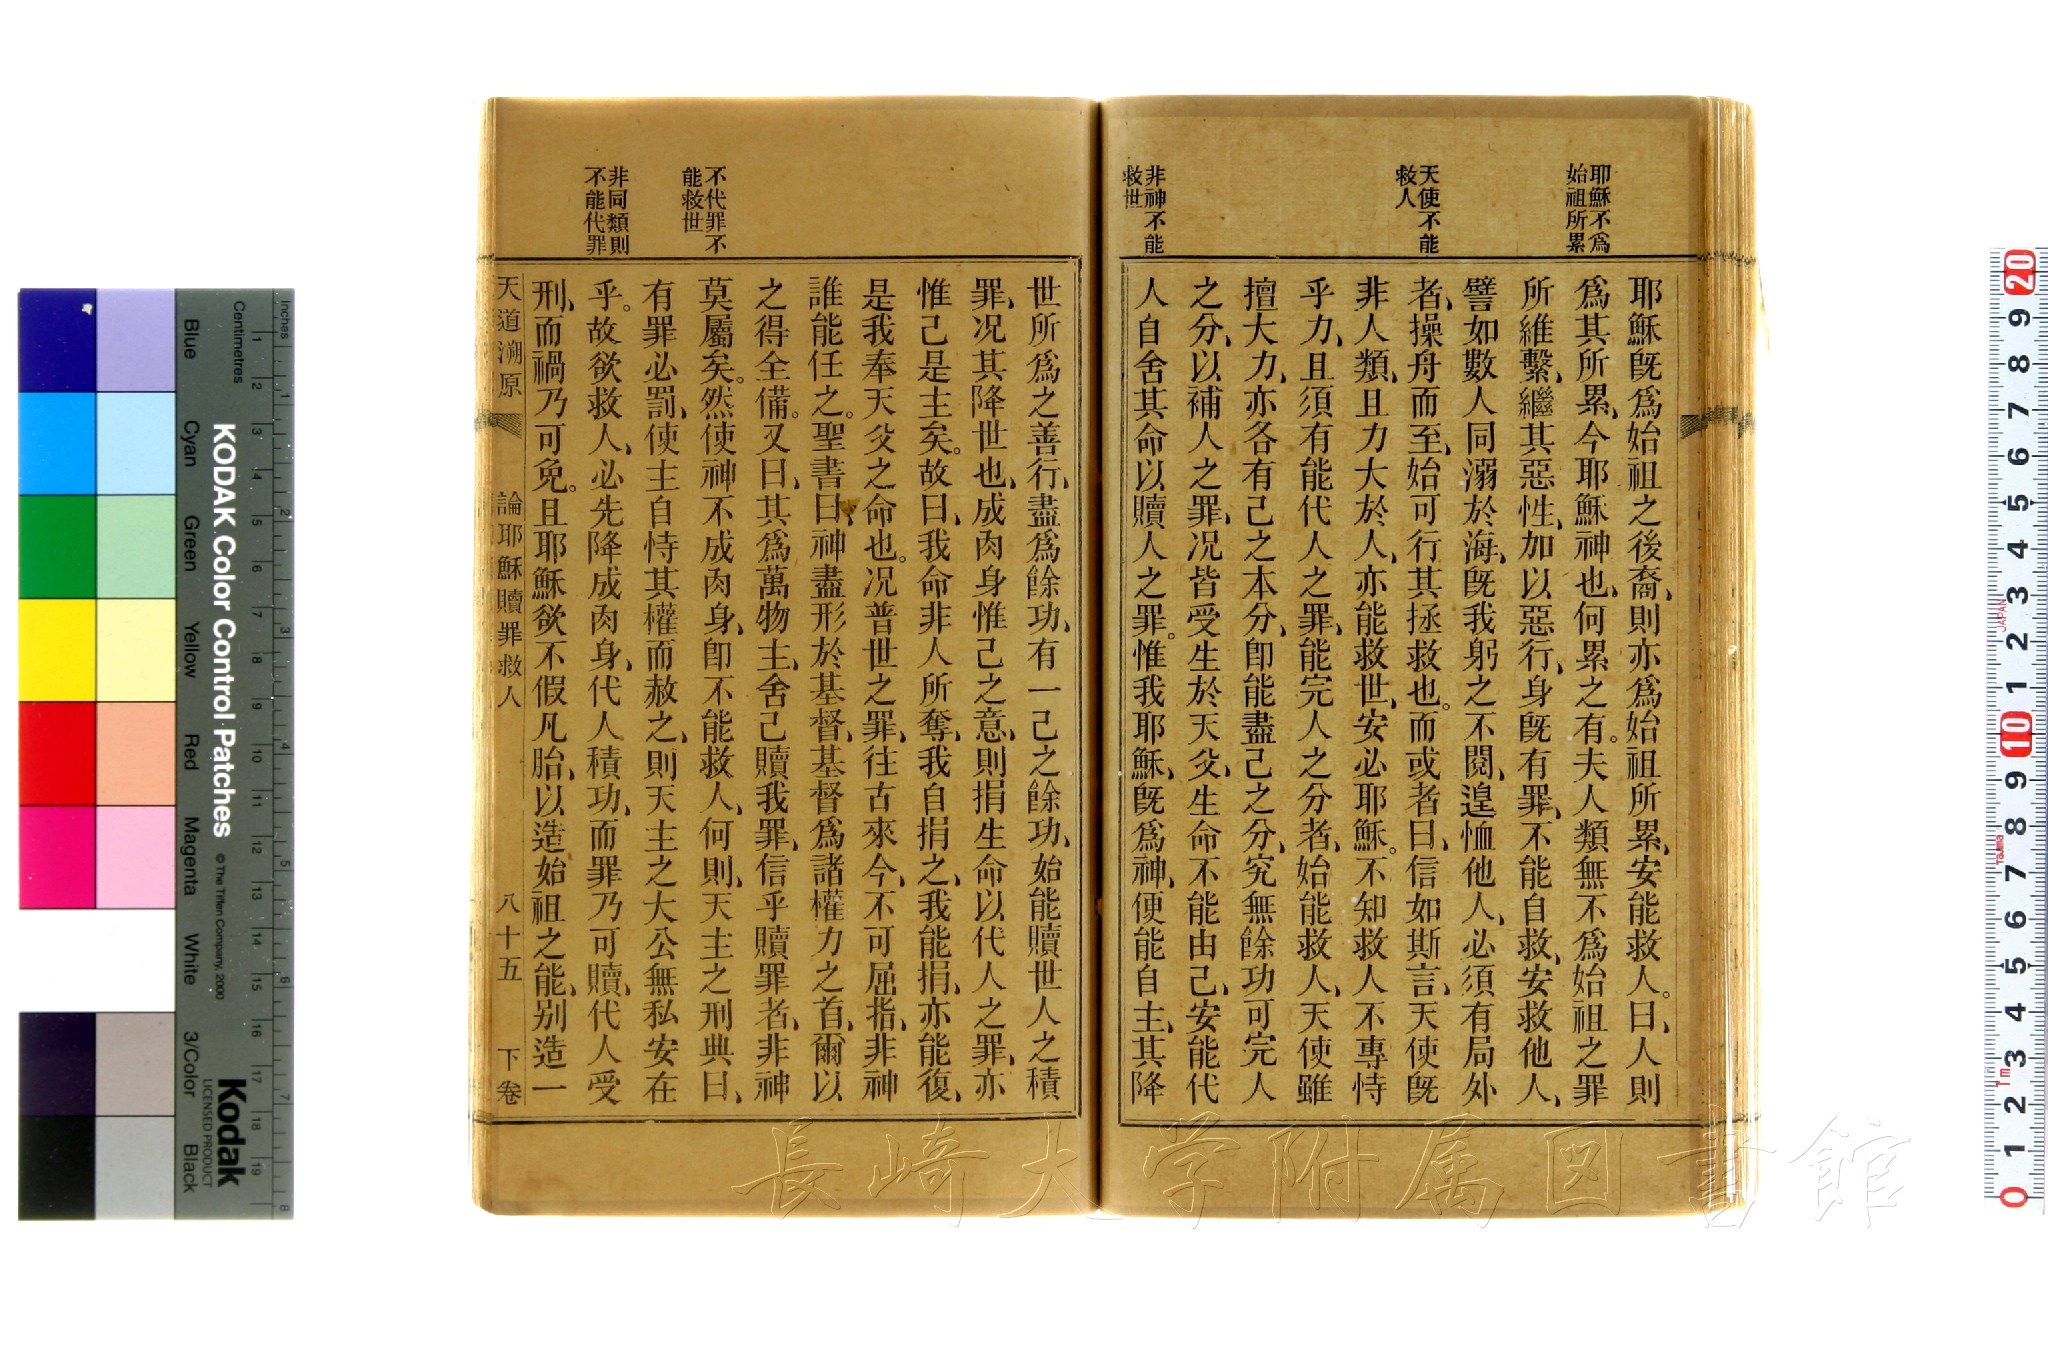 耶穌不爲
始祖所累
天使不能
救人
非神不能
救世
耶穌旣爲始祖之後裔、則亦爲始祖所累、安能救人。曰、人則
爲其所累、今耶穌神也、何累之有。夫人類無不爲始祖之罪
所維繫、繼其惡性、加以惡行、身旣有罪、不能自救、安救他人、
譬如數人同溺於海、旣我躬之不閱、遑恤他人、必須有局外
者、操舟而至、始可行其拯救也。而或者曰、信如斯言、天使旣
非人類、且力大於人、亦能救世、安必耶穌。不知救人不專恃
乎力、且須有能代人之罪、能完人之分者、始能救人、天使雖
擅大力、亦各有己之本分、卽能盡己之分、究無餘功可完人
之分、以補人之罪、况皆受生於天父、生命不能由己、安能代
人自舍其命以贖人之罪。惟我耶穌、旣爲神、便能自主、其降
不代罪不
能救世
非同類則
不能代罪
世所爲之善行、盡爲餘功、有一己之餘功、始能贖世人之積
罪、况其降世也、成肉身惟己之意、則捐生命以代人之罪、亦
惟己是主矣。故曰、我命非人所奪、我自捐之、我能捐、亦能復、
是我奉天父之命也。况普世之罪、往古來今、不可屈指、非神
誰能任之。聖書曰、神盡形於基督、基督爲諸權力之首、爾以
之得全備。又曰、其爲萬物主、舍己贖我罪、信乎贖罪者、非神
莫屬矣。然使神不成肉身、卽不能救人、何則、天主之刑典曰、
有罪必罰、使主自恃其權而赦之、則天主之大公無私安在
乎。故欲救人、必先降成肉身、代人積功、而罪乃可贖、代人受
刑、而禍乃可免。且耶穌欲不假凡胎、以造始祖之能、別造一
天道溯原 論耶穌贖罪救人 八十五 下卷
長崎大学附属図書館
Inches
Centimetres
Blue
Cyan
Green
Yellow
Red
Magenta
White
3/Color
Black
KODAK Color Control Patches
© The Tiffen Company, 2000
Kodak
LICENSED PRODUCT
JAPAN